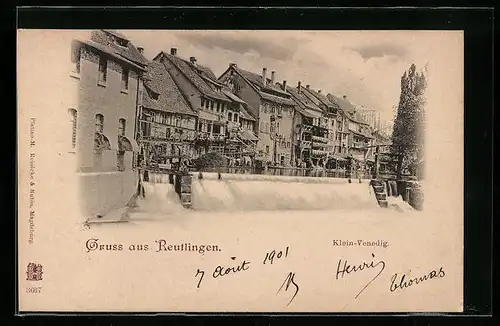 Gruss aus Reutlingen.
Klein-Venedig.
7 août 1901
Henry Thomas
Platino-M. Reinicke & Rubin, Magdeburg.
3637